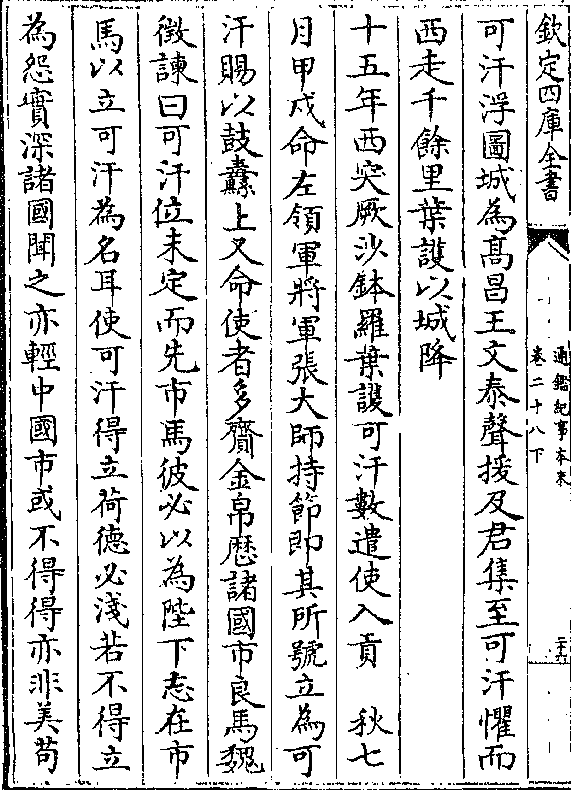 欽定四庫全書
通鑑紀事本末
卷二十八下
二十六
可汗浮圖城為髙昌王文泰聲援及君集至可汗懼而
西走千餘里葉護以城降
十五年西突厥沙鉢羅葉護可汗數遣使入貢　秋七
月甲戌命左領軍將軍張大師持節即其所號立為可
汗賜以鼓纛上又命使者多齎金帛歴諸國市良馬魏
徵諫曰可汗位未定而先市馬彼必以為陛下志在市
馬以立可汗為名耳使可汗得立荷德必淺若不得立
為怨實深諸國聞之亦輕中國市或不得得亦非美茍